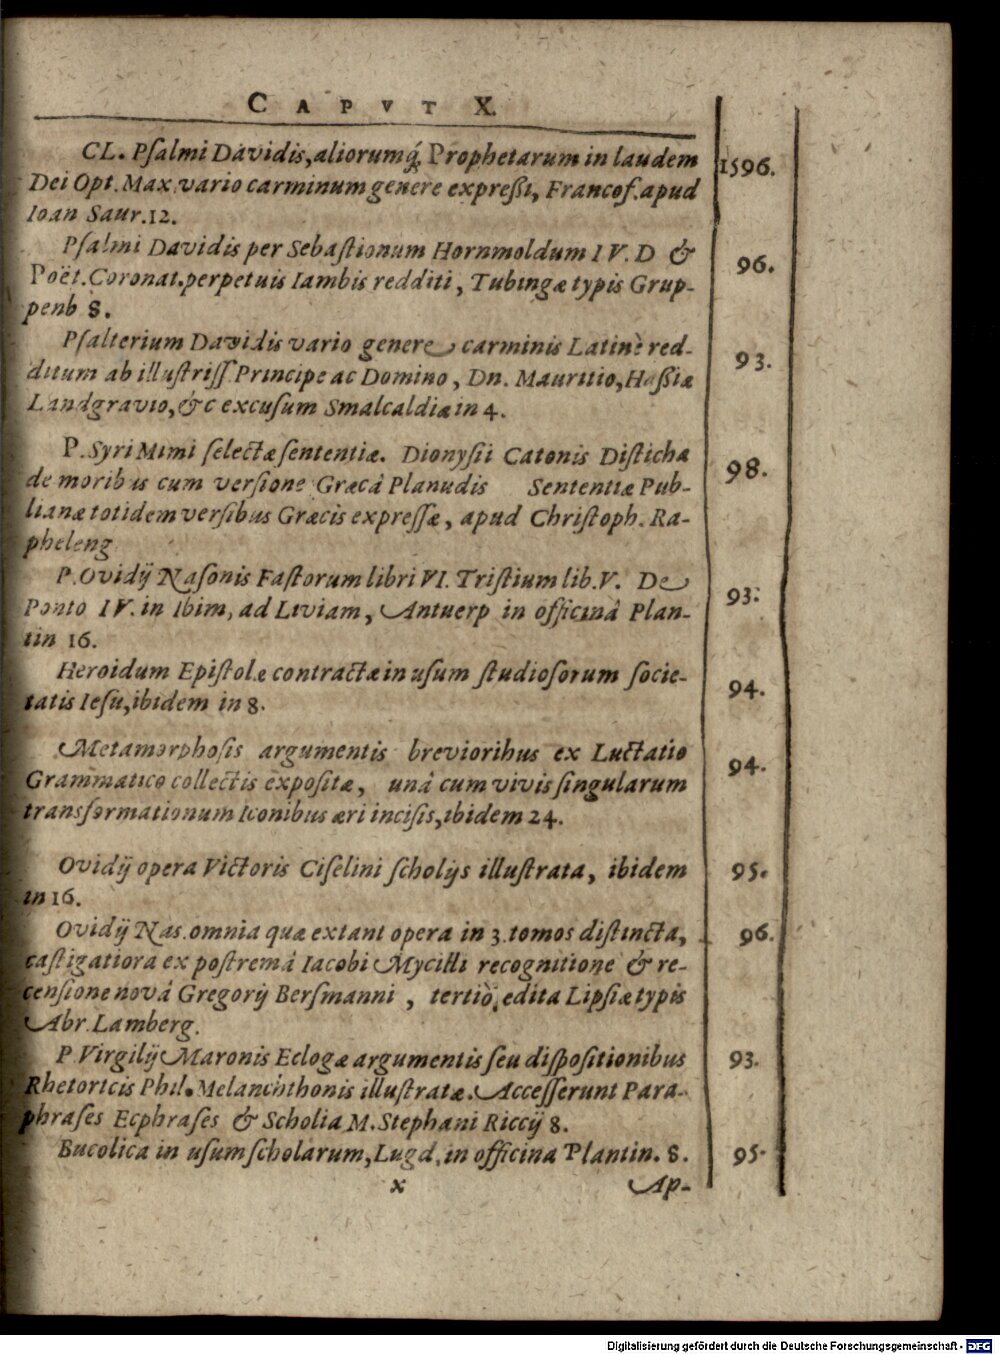 CAPVT X.
CL. Pſalmi Davidis, aliorumq́; Prophetarum in laudem 1596.
Dei Opt. Max. vario carminum genere expreßi, Francof. apud
Ioan Saur. 12.
Pſalmi Davidis per Sebaſtionum Hornmoldum IV. D & 96.
Poët. Coronat. perpetuis Iambis redditi, Tubingæ typis Grup-
penb 8.
Pſalterium Davidis vario genere carminis Latinè red- 93.
ditum ab illuſtriſſ. Principe ac Domino, Dn. Mauritio, Haßiæ
Landgravio, &c excuſum Smalcaldiæ in 4.
P. Syri Mimi ſelectæ ſententiæ. Dionyſii Catonis Diſticha 98.
de moribus cum verſione Græcâ Planudis Sententiæ Pub-
lianæ totidem verſibus Græcis expreſſæ, apud Chriſtoph. Ra-
pheleng
P. Ovidij Naſonis Faſtorum libri VI. Triſtium lib. V. De 93.
Ponto IV. in Ibim, ad Liviam, Antuerp in officinâ Plan-
tin 16.
Heroidum Epiſtolæ contractæ in uſum ſtudioſorum ſocie- 94.
tatis Ieſu, ibidem in 8.
Metamorphoſis argumentis brevioribus ex Luctatio 94.
Grammatico collectis expoſitæ, unâ cum vivis ſingularum
transformationum Iconibus æri inciſis, ibidem 24.
Ovidij opera Victoris Ciſelini ſcholijs illuſtrata, ibidem 95.
in 16.
Ovidij Nas. omnia quæ extant opera in 3. tomos diſtincta, 96.
caſtigatiora ex poſtremâ Iacobi Mycilli recognitione & re-
cenſione novâ Gregorij Berſmanni, tertiò edita Lipſiæ typis
Abr. Lamberg.
P Virgilij Maronis Eclogæ argumentis ſeu diſpoſitionibus 93.
Rhetoricis Phil. Melanchthonis illuſtratæ. Acceſſerunt Para-
phraſes Ecphraſes & Scholia M. Stephani Riccij 8.
Bucolica in uſum ſcholarum, Lugd. in officina Plantin. 8. 95.
x Ap-
Digitalisierung gefördert durch die Deutsche Forschungsgemeinschaft - DFG